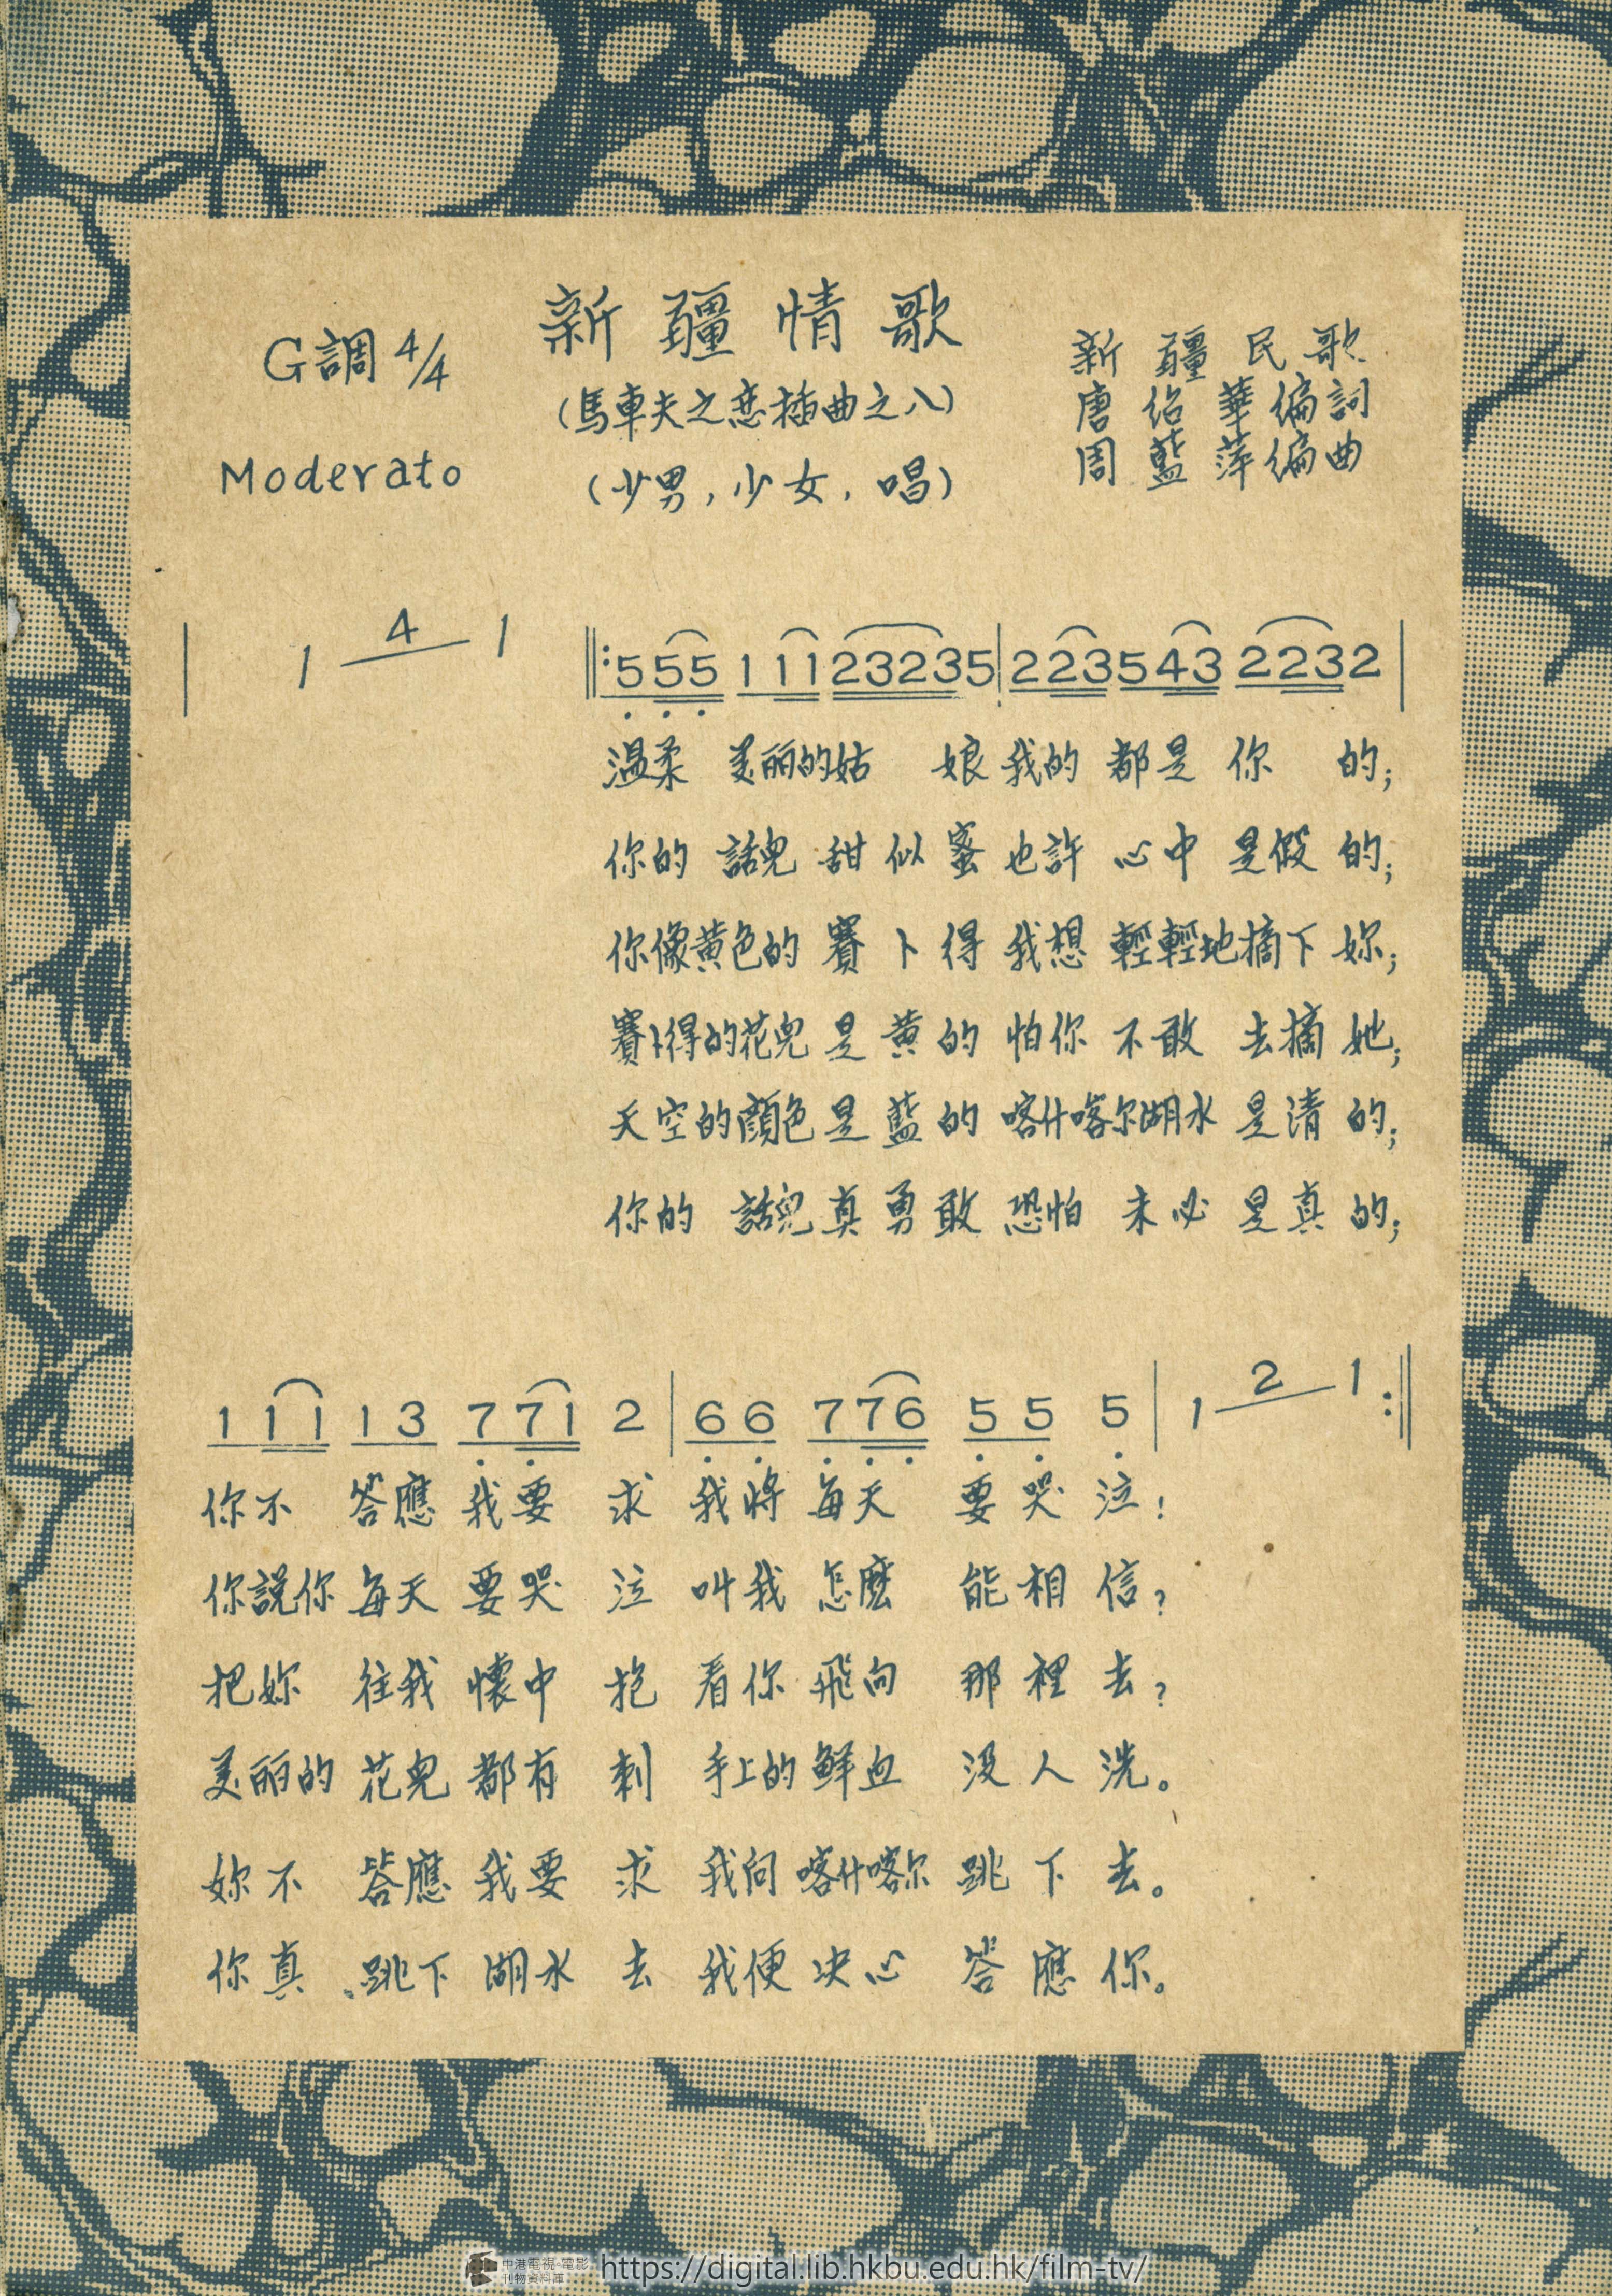 新疆情歌
G調 4/4
(馬車夫之恋插曲之八)
Moderato
(少男,少女,唱)
新疆民歌
唐绍華編詞
周藍萍編曲
| 1 4 1 ‖: 5 5 5 1 1 1 2 3 2 3 5 | 2 2 3 5 4 3 2 2 3 2 |
温柔 美丽的姑 娘 我的 都是 你 的;
你的 話兒 甜似蜜 也許 心中 是假的;
你像黄色的 賽卜得 我想 輕輕地摘下 妳;
賽卜得的花兒 是黄的 怕你 不敢 去摘她;
天空的顏色是藍的 喀什喀尔湖水 是清的;
你的 話兒真勇敢 恐怕 未必 是真的;
1 1 1 1 3 7 7 1 2 | 6 6 7 7 6 5 5 5 | 1 2 1 :‖
你不 答應 我要 求 我將 每天 要哭泣!
你説你 每天 要哭 泣 叫我 怎麽 能相信?
把妳 往我 懷中 抱 看你 飛向 那裡去?
美丽的 花兒 都有 刺 手上的 鲜血 没人洗。
妳不 答應 我要 求 我向 喀什喀尔 跳下去。
你真 跳下 湖水 去 我便 决心 答應你。
中港電視・電影
刊物資料庫
https://digital.lib.hkbu.edu.hk/film-tv/